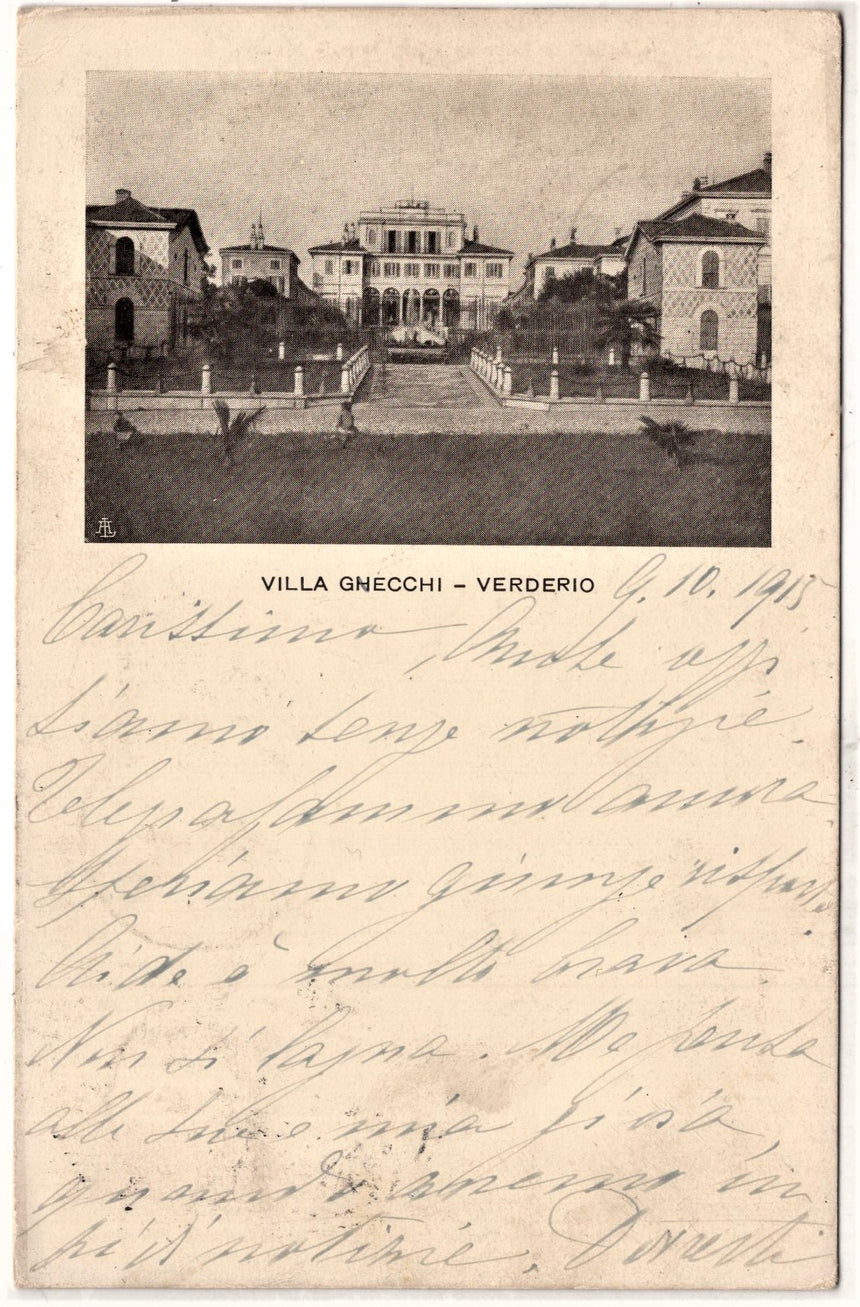 VILLA GNECCHI – VERDERIO
9. 10. 1915
Carissimo, Anche oggi
siamo senza notizie.
Telegrafammo ancora
Speriamo giunga risposta.
è molto brava
Non si lagna. Ma pensa
alla tua e mia gioia,
quando avremo
notizie.